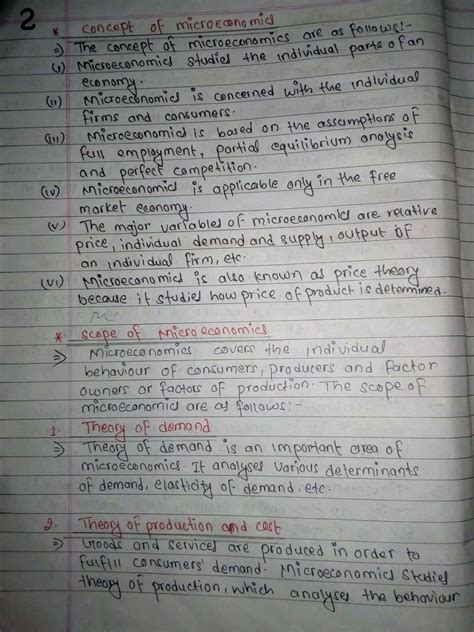 2
* concept of microeconomics
⇒) The concept of microeconomics are as follows:-
(i) Microeconomics studies the individual parts of an
economy.
(ii) Microeconomics is concerned with the individual
firms and consumers.
(iii) Microeconomics is based on the assumptions of
full employment, partial equilibrium analysis
and perfect competition.
(iv) Microeconomics is applicable only in the free
market economy.
(v) The major variables of microeconomics are relative
price, individual demand and supply, output of
an individual firm, etc.
(vi) Microeconomics is also known as price theory
because it studies how price of product is determined.
* scope of Microeconomics
⇒) Microeconomics covers the individual
behaviour of consumers, producers and factor
owners or factors of production. The scope of
microeconomics are as follows:-
1. Theory of demand
⇒) Theory of demand is an important area of
microeconomics It analyses various determinants
of demand, elasticity of demand. etc.
2. Theory of production and cost
⇒) Goods and services are produced in order to
fulfill consumers' demand. Microeconomics studies
theory of production, which analyses the behaviour